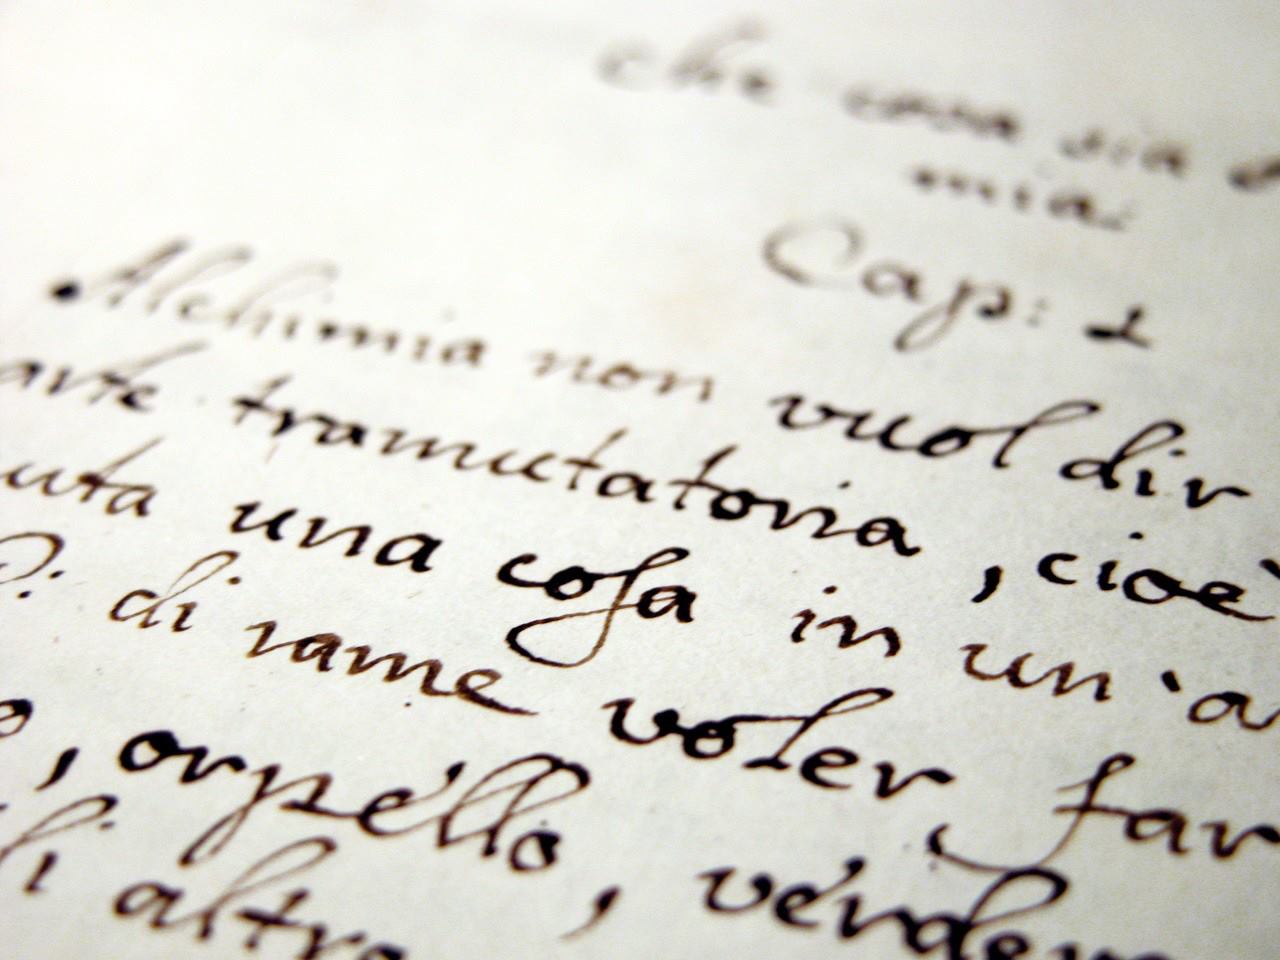 che cosa sia
mia:
Cap: 1
Alchimia non vuol dir
arte tramutatoria, cioè
uta una coſa in un'a
di rame voler far
o, orpéllo, vérder
li altre